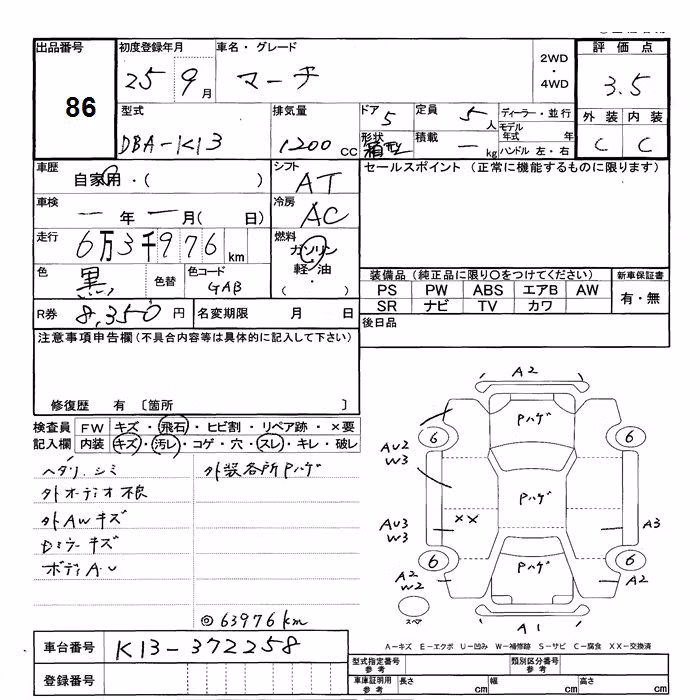 出品番号
86
初度登録年月
25 9月
車名・グレード
マーチ
2WD
・
4WD
評価点
3.5
外装 内装
C C
型式
DBA-K13
排気量
1200 CC
ドア 5
形状 箱型
定員 5人
積載 ー kg
ディーラー・並行
モデル年式 年
ハンドル 左・右
車歴
自家用・( )
シフト
AT
セールスポイント (正常に機能するものに限ります)
車検
一年一月( 日)
冷房
AC
走行
6万3千976km
燃料
ガソリン
軽・油
・
( )
色
黒
色替
色コード
GAB
装備品 (純正品に限り〇をつけてください)
新車保証書
PS PW ABS エアB AW
SR ナビ TV カワ
有・無
R券 8,350円
名変期限 月 日
後日品
注意事項申告欄 (不具合内容等は具体的に記入して下さい)
修復歴 有 〔箇所 〕
検査員記入欄
FW キズ・飛石・ヒビ割・リペア跡・×要
内装 キズ・汚レ・コゲ・穴・スレ・キレ・破レ
ヘタリ、シミ
外装各所Pハゲ
外オーディオ不良
外AWキズ
Dミラーキズ
ボディA・U
◎63976km
車台番号 K13-372258
登録番号
A2
Pハゲ
6 6
AU2
W3
Pハゲ
××
AU3
W3
A3
6 6
Pハゲ
A2
W2
A2
スペア
A1
A-キズ E-エクボ U-凹み W-補修跡 S-サビ C-腐食 XX-交換済
型式指定番号 参考
類別区分番号 参考
車庫証明用 参考
長さ cm 幅 cm 高さ cm